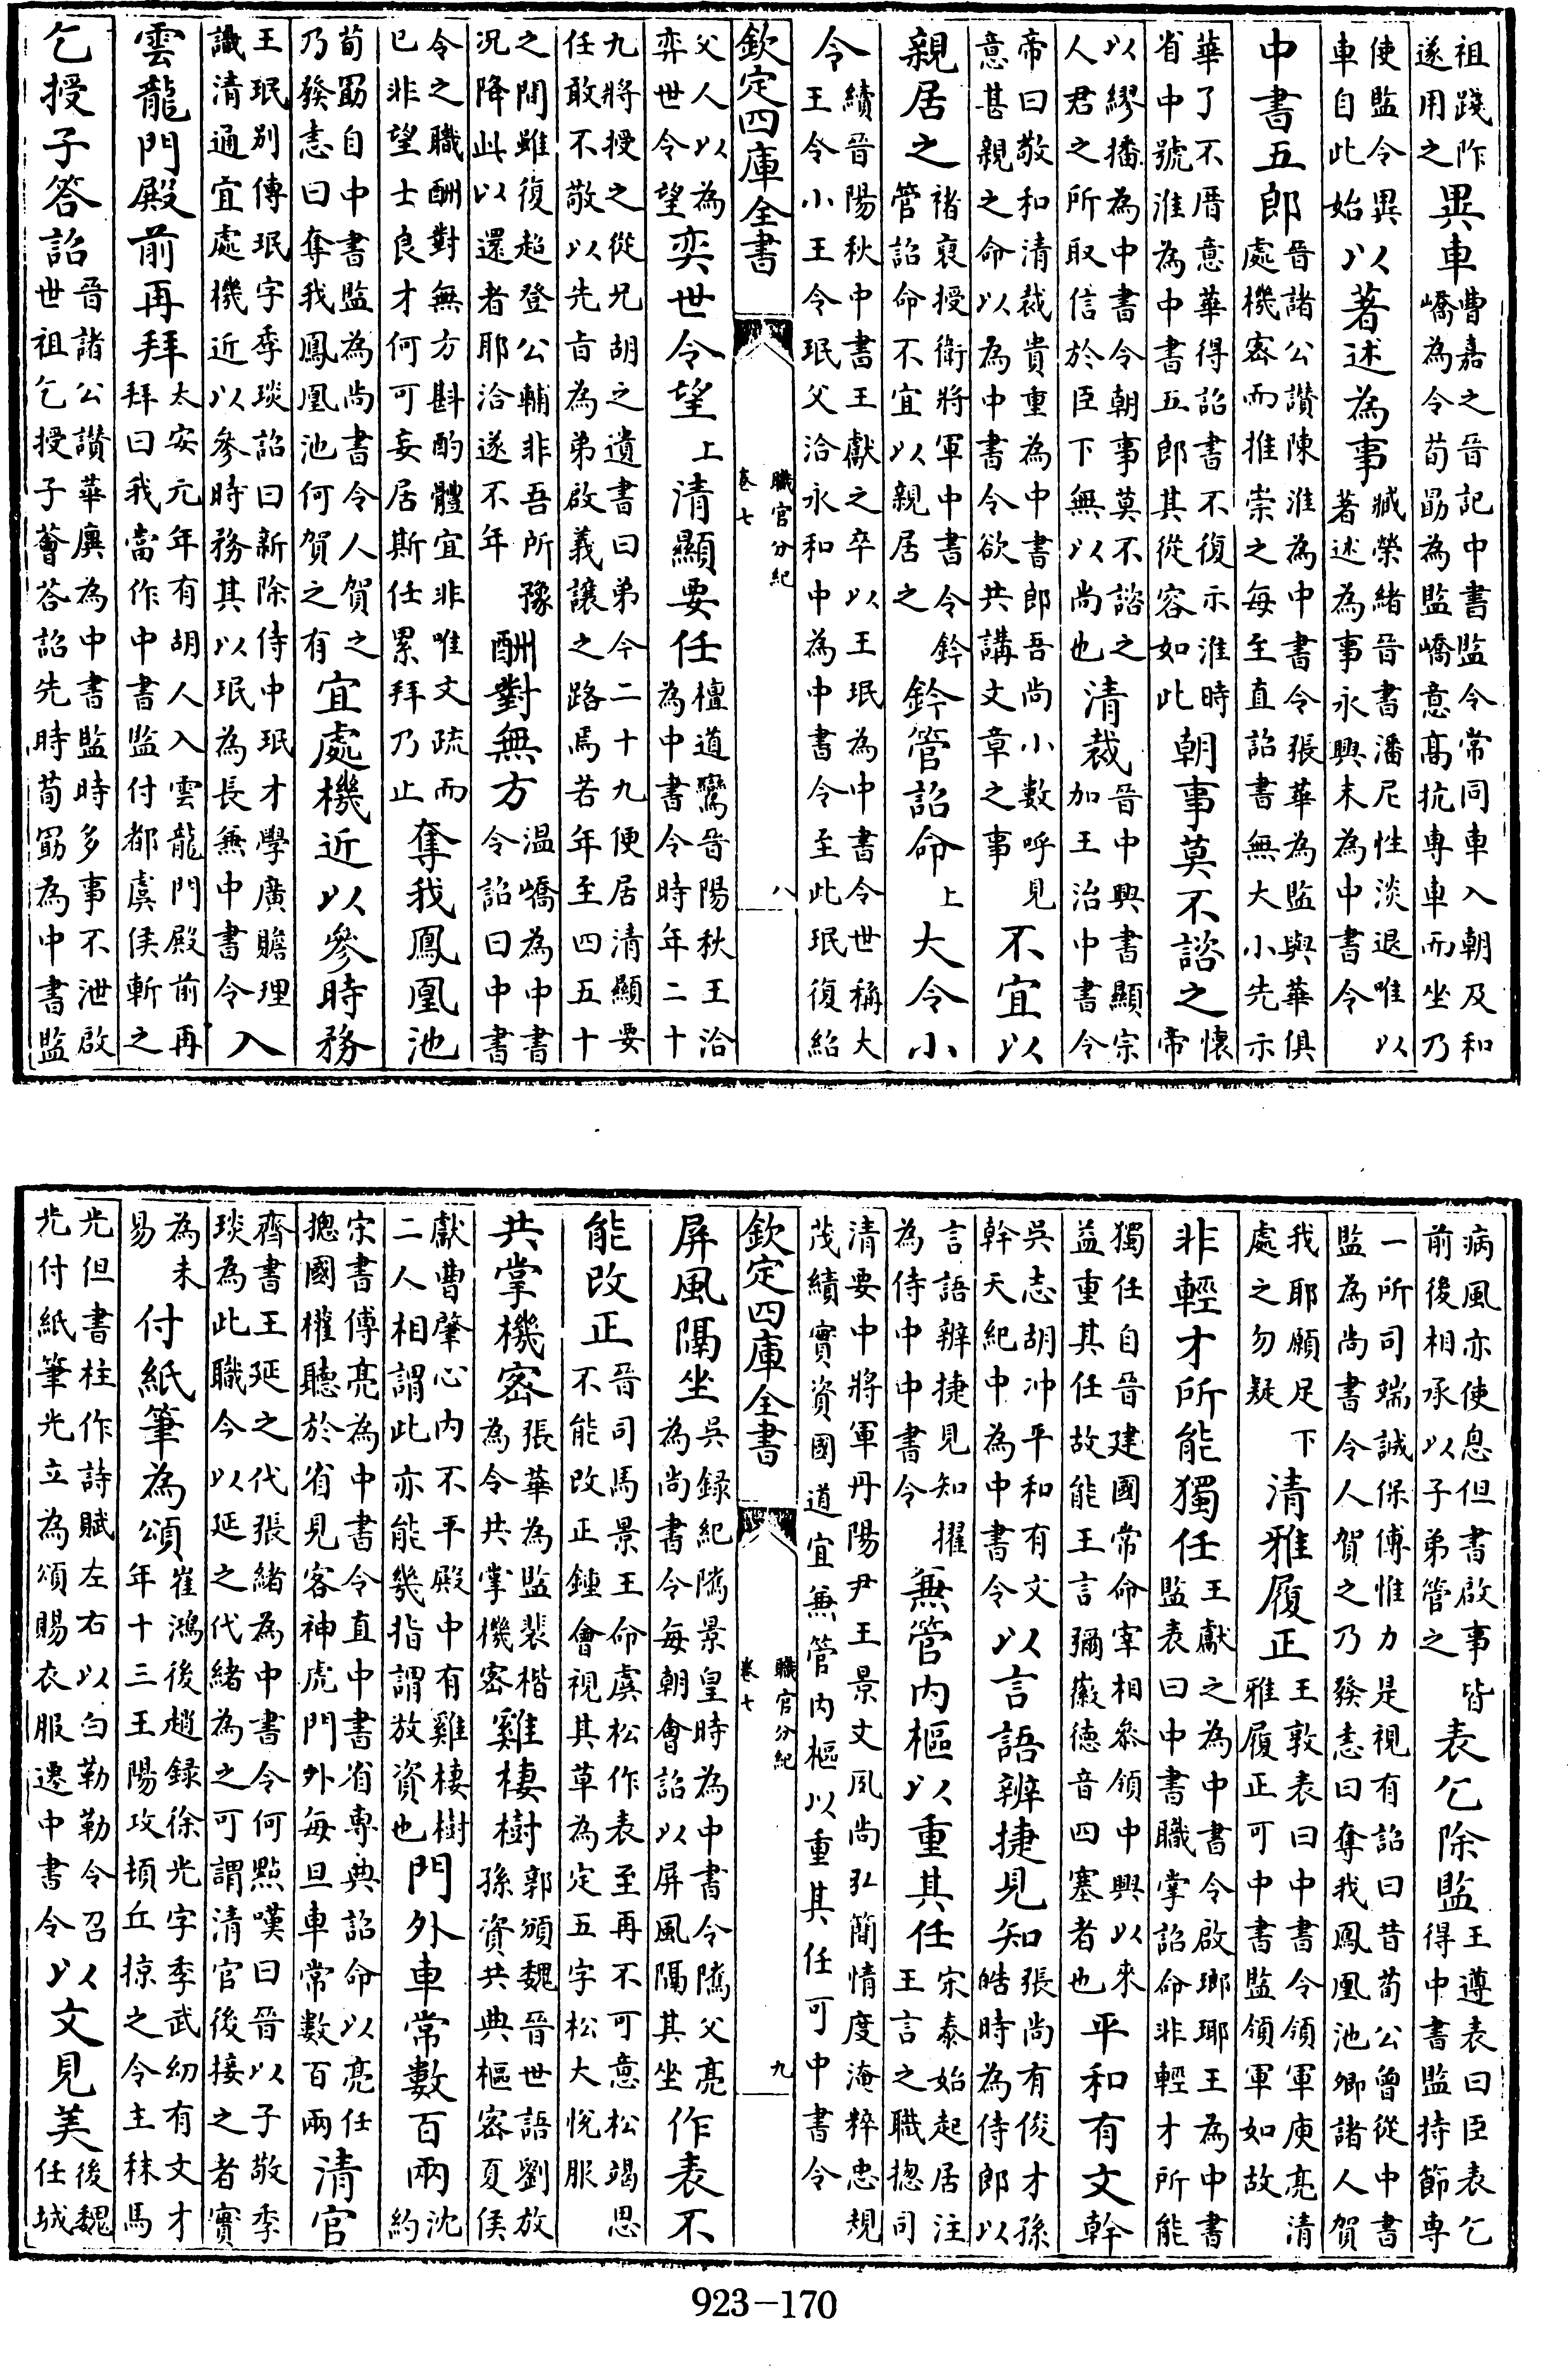 祖踐阼
遂用之異車曹嘉之晉記中書監令常同車入朝及和
嶠為令荀勗為監嶠意髙抗専車而坐乃
使監令異
車自此始以著述為事臧榮緒晉書潘尼性淡退唯以
著述為事永興末為中書令
中書五郎晉諸公讚陳淮為中書令張華為監與華俱
處機宻而推崇之每至直詔書無大小先示
華了不厝意華得詔書不復示淮時
省中號淮為中書五郎其從容如此朝事莫不諮之懐
帝
以繆播為中書令朝事莫不諮之
人君之所取信於臣下無以尚也清裁晉中興書顯宗
加王洽中書令
帝曰敬和清裁貴重為中書郎吾尚小數呼見
意甚親之命以為中書令欲共講文章之事不宜以
親居之褚裒授衛將軍中書令鈐
管詔命不宜以親居之鈐管詔命上大令小
令續晉陽秋中書王獻之卒以王珉為中書令世稱大
王令小王令珉父洽永和中為中書令至此珉復紹
欽定四庫全書
職官分紀
卷七
八
父人以為
弈世令望奕世令望上清顯要任檀道鸞晉陽秋王洽
為中書令時年二十
九將授之從兄胡之遺書曰弟今二十九便居清顯要
任敢不敬以先㫖為弟啟義譲之路焉若年至四五十
之間雖復超登公輔非吾所豫
况降此以還者耶洽遂不年酬對無方温嶠為中書
令詔曰中書
令之職酬對無方斟酌體宜非唯文疏而
已非望士良才何可妄居斯任累拜乃止奪我鳳凰池
荀勗自中書監為尚書令人賀之
乃發恚曰奪我鳳凰池何賀之有宜處機近以參時務
王珉别傳珉字季琰詔曰新除侍中珉才學廣贍理
識清通宜處機近以參時務其以珉為長兼中書令入
雲龍門殿前再拜太安元年有胡人入雲龍門殿前再
拜曰我當作中書監付都虞侯斬之
乞授子答詔晉諸公讚華廙為中書監時多事不泄啟
世祖乞授子薈荅詔先時荀勗為中書監
病風亦使息但書啟事皆
前後相承以子弟管之表乞除監王遵表曰臣表乞
得中書監持節専
一所司端誠保傅惟力是視有詔曰昔荀公曾從中書
監為尚書令人賀之乃發恚曰奪我鳳凰池卿諸人賀
我耶願足下
處之勿疑清雅履正王敦表曰中書令領軍庾亮清
雅履正可中書監領軍如故
非輕才所能獨任王獻之為中書令啟瑯琊王為中書
監表曰中書職掌詔命非輕才所能
獨任自晉建國常命宰相參領中興以來
益重其任故能王言彌徽德音四塞者也平和有文幹
吳志胡冲平和有文
幹天紀中為中書令以言語辨捷見知張尚有俊才孫
皓時為侍郎以
言語辨捷見知擢
為侍中中書令兼管内樞以重其任宋泰始起居注
王言之職揔司
清要中將軍丹陽尹王景文夙尚弘簡情度淹粹忠規
茂績實資國道宜兼管内樞以重其任可中書令
欽定四庫全書
職官分紀
卷七
九
屏風隔坐吳録紀隲景皇時為中書令隲父亮
為尚書令每朝會詔以屏風隔其坐作表不
能改正晉司馬景王命虞松作表至再不可意松竭思
不能改正鍾會視其草為定五字松大悅服
共掌機宻張華為監裴楷
為令共掌機宻雞棲樹郭頒魏晉世語劉放
孫資共典樞宻夏侯
獻曹肇心内不平殿中有雞棲樹
二人相謂此亦能幾指謂放資也門外車常數百兩沈
約
宋書傅亮為中書令直中書省専典詔命以亮任
揔國權聽於省見客神虎門外每旦車常數百兩清官
齊書王延之代張緒為中書令何點嘆曰晉以子敬季
琰為此職今以延之代緒為之可謂清官後接之者實
為未
易付紙筆為頌崔鴻後趙録徐光字季武幼有文才
年十三王陽攻頓丘掠之令主秣馬
光但書柱作詩賦左右以白勒勒令召
光付紙筆光立為頌賜衣服遷中書令以文見美後魏
任城
923—170